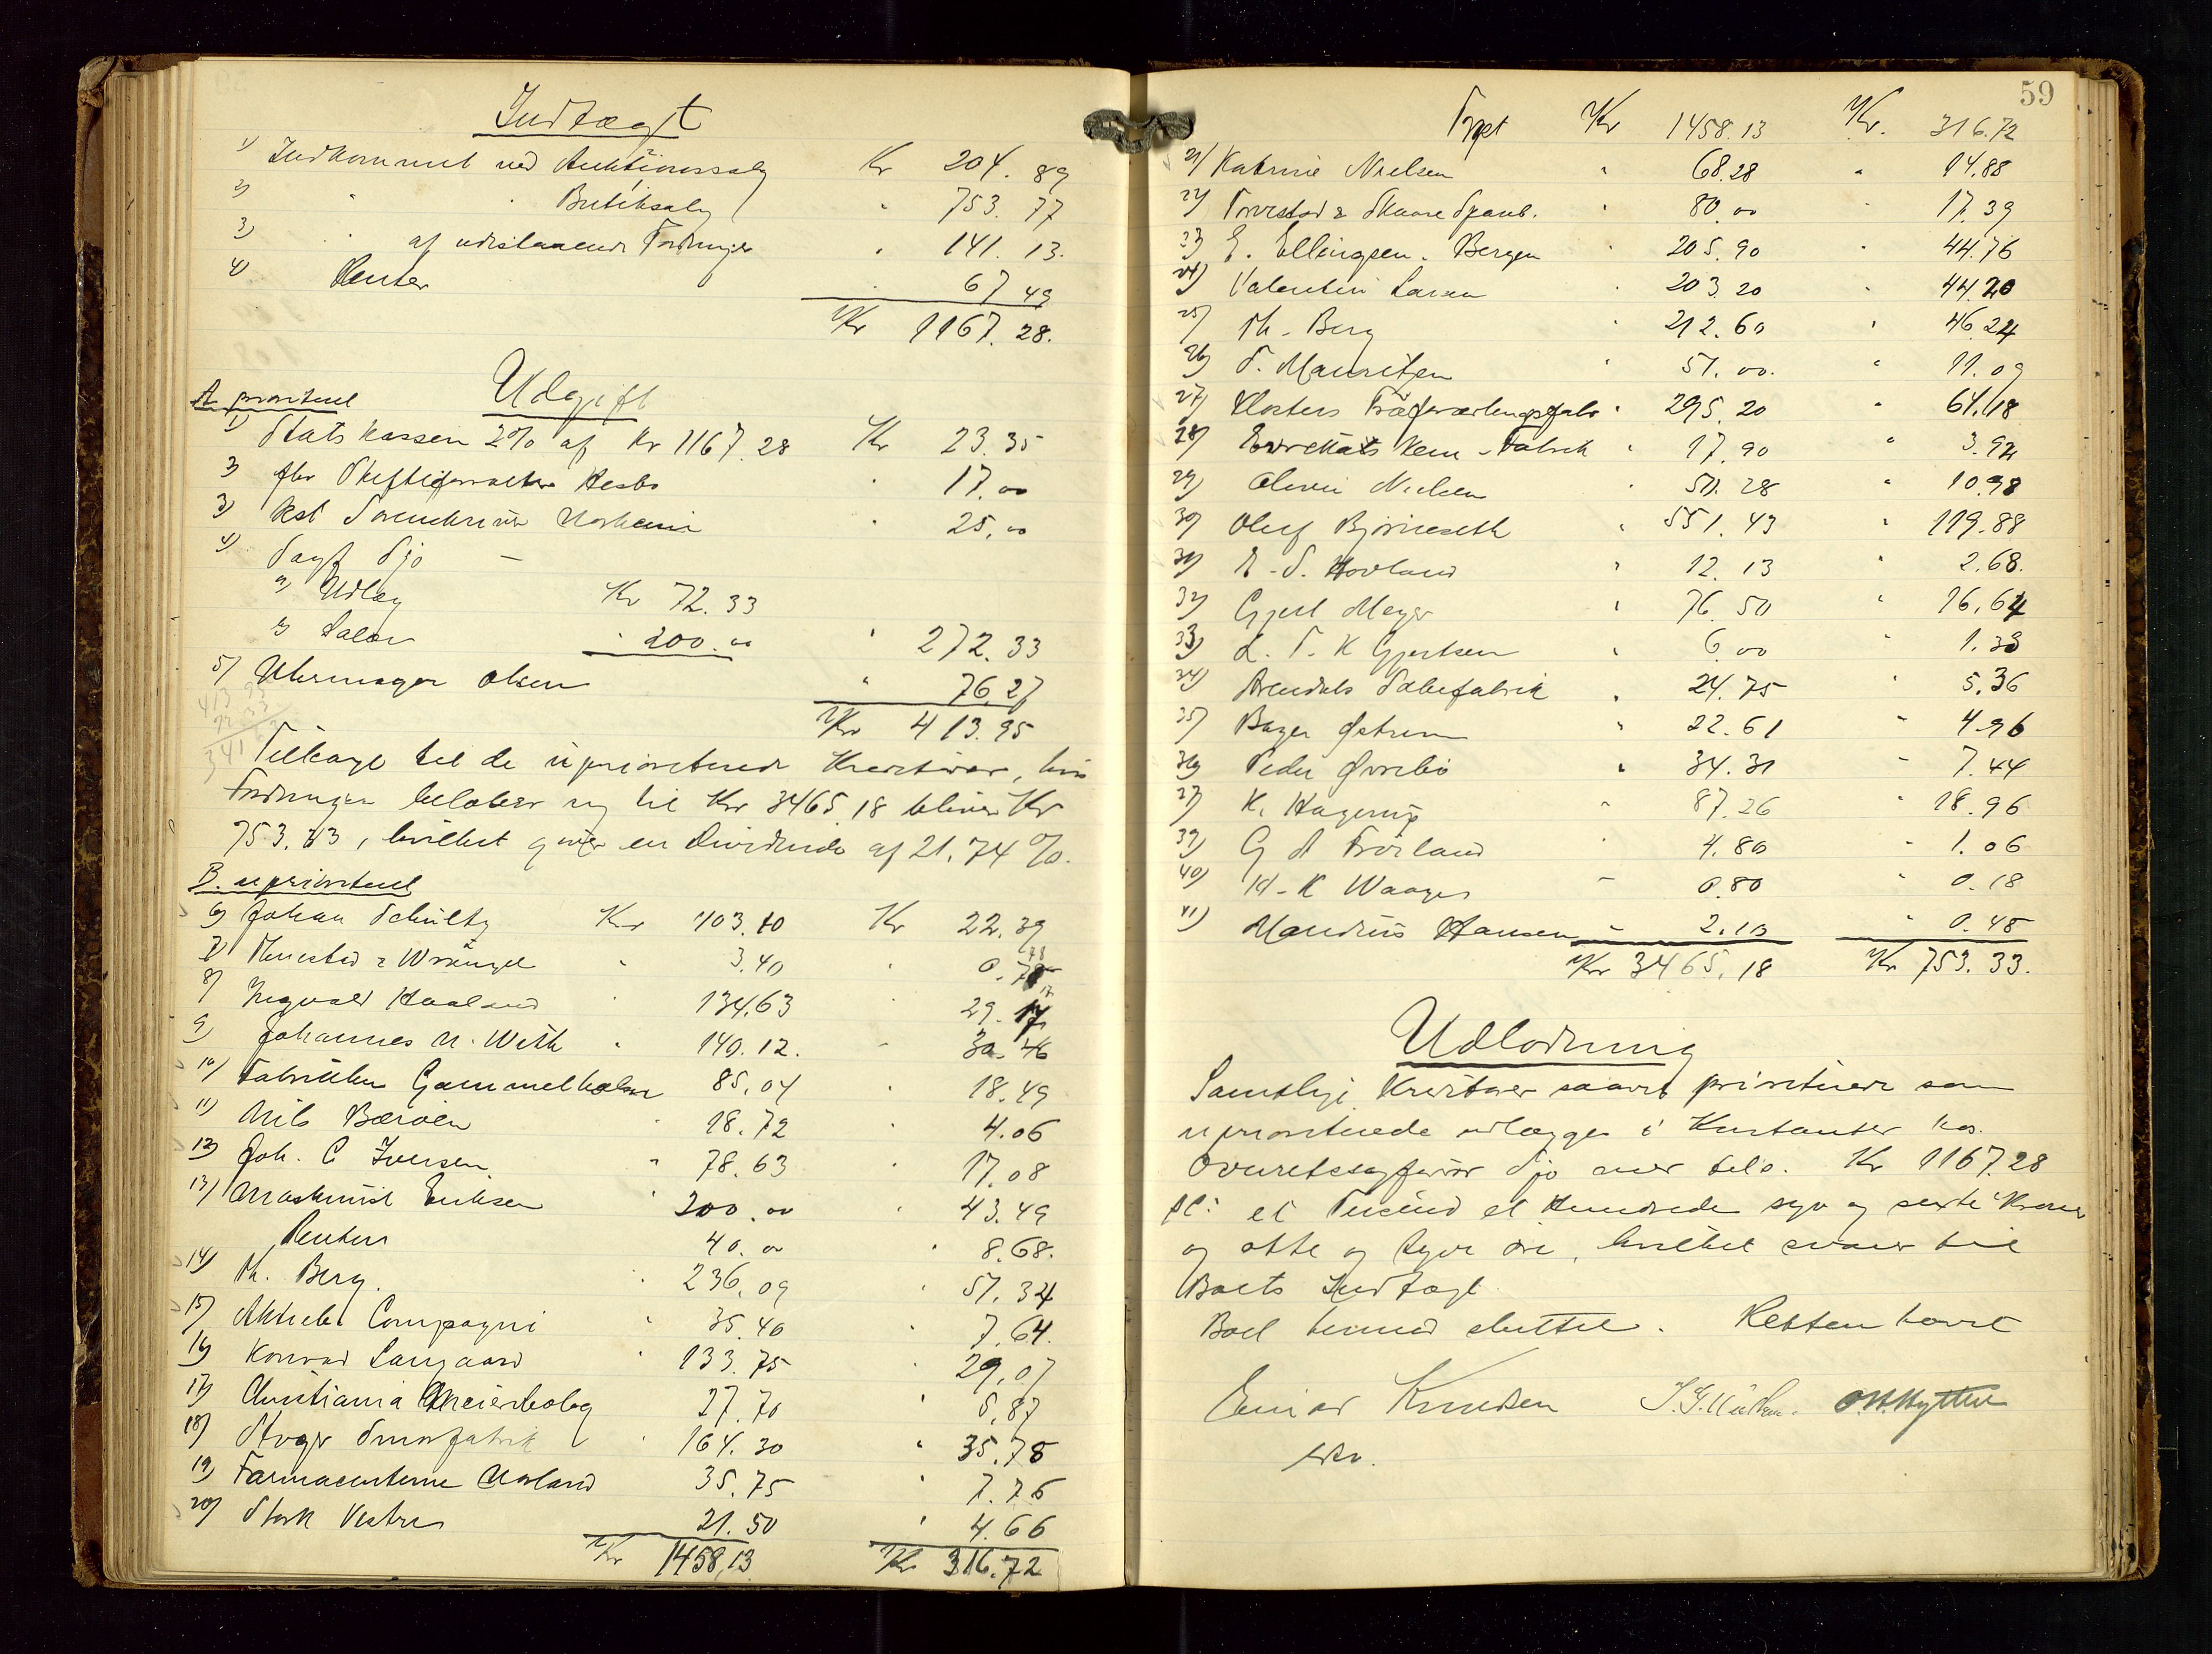 Indtægt
1) Indkommet ved Auktionssalg Kr 204. 89
2) " " Butiksalg " 753. 77
3) " af udestaaende Fordringer " 141. 13.
4) Renter 67 49
Kr 1167. 28.
Udgift
A. prioriteret
1) Statskassen 2% af Kr 1167.28 Kr 23.35
17.00
25.00
4) Sagf Sjo –
a) Udlæg Kr 72.33
b) Salær " 200.00 " 272.33
5) Uhrmager Olsen " 76.27
Kr 413.95
Tilbage til de uprioriterede Kreditorer, hvis
Fordringer beløber sig til Kr 3465.18 bliver Kr
753.33, hvilket giver en Dividende af 21.74 %.
B. uprioriteret
6) Johan Schultz Kr 103.10 Kr 22.39
7) 3.40
8) Ingvald Haaland " 134.63 " 29.
9) Johannes N. With " 140.12. " 30.46
10) Fabrikken Gammelholm 85.04 " 18.49
11) Nils Bærøen " 18.72 " 4.06
12) Joh. C Iversen " 78.63 " 17.08
13) Maskinist Eriksen " 200.00 " 43.49
Renter 40.00 " 8.68.
14) Th. Berg. " 236.09 " 51.34
15) Compagni " 35.40 " 7.64.
16) Konrad Langaard " 133.75 " 29.07
17) Christiania Meieribolag 27.70 "
18) Smørfabrik " 164.30 " 35.78
19) Farmaceuterne 35.75 " 7.76
20) 21.50 " 4.66
Kr 1458.13 Kr 316.72
59
Trpt Kr 1458.13 Kr. 316.72
21) Katrine Nielsen " 68.28 " 14.88
22) Torvestad & Skaare Spareb. " 80.00 17.39
23) E. Ellingsen. Bergen " 205.90 " 44.76
24) Valentin Larsen " 203.20 " 44.20
25) Th. Berg " 212.60 " 46.24
26) T. Mauritzen " 51.00. " 11.09
27) Klosters " 295.20 " 64.18
28) Kem. Fabrik " 17.90 " 3.92
29) Nielsen " 50.28 " 10.98
30) Oluf Bjørneseth " 551.43 " 119.88
31) E. S. Hovland " 12.13 " 2.68.
32) Gjert Meyer " 76.50 " 16.64
33) L. T. K Gjertsen " 6.00 " 1.33
34) Arendals " 24.75 " 5.36
35) Bager Østrem " 22.61 " 4.96
36) Peder Øvrebø " 34.31 " 7.44
37) K. Hagerup " 87.26 " 18.96
39) G A Frøland " 4.80 " 1.06
40) H. K Waage " 0.80 " 0.18
41) Hansen " 2.13 " 0.48
Kr 3465.18 Kr 753.33.
Udlodning
Samtlige Kreditorer saavel prioriterede som
uprioriterede udlægges i Kontanter hos
Overretssagfører Sjo Kr 1167.28
et Tusind et Hundrede syv og sexti Kroner
og otte og tyve øre, hvilket svarer til
Boets Indtægt.
Boet hermed sluttet. Retten hævet
Einar Knudsen